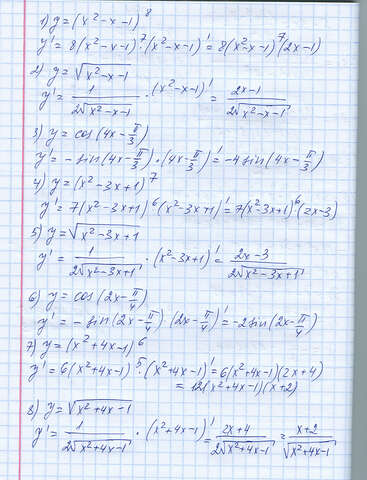 1) y = (x²-x-1)⁸
y' = 8(x²-x-1)⁷·(x²-x-1)' = 8(x²-x-1)⁷(2x-1)
2) y = √(x²-x-1)
y' = 1/(2√(x²-x-1)) · (x²-x-1)' = (2x-1)/(2√(x²-x-1))
3) y = cos(4x-π/3)
y' = -sin(4x-π/3)·(4x-π/3)' = -4sin(4x-π/3)
4) y = (x²-3x+1)⁷
y' = 7(x²-3x+1)⁶(x²-3x+1)' = 7(x²-3x+1)⁶(2x-3)
5) y = √(x²-3x+1)
y' = 1/(2√(x²-3x+1)) · (x²-3x+1)' = (2x-3)/(2√(x²-3x+1))
6) y = cos(2x-π/4)
y' = -sin(2x-π/4)(2x-π/4)' = -2sin(2x-π/4)
7) y = (x²+4x-1)⁶
y' = 6(x²+4x-1)⁵·(x²+4x-1)' = 6(x²+4x-1)(2x+4)
= 12(x²+4x-1)(x+2)
8) y = √(x²+4x-1)
y' = 1/(2√(x²+4x-1)) · (x²+4x-1)' = (2x+4)/(2√(x²+4x-1)) = (x+2)/√(x²+4x-1)